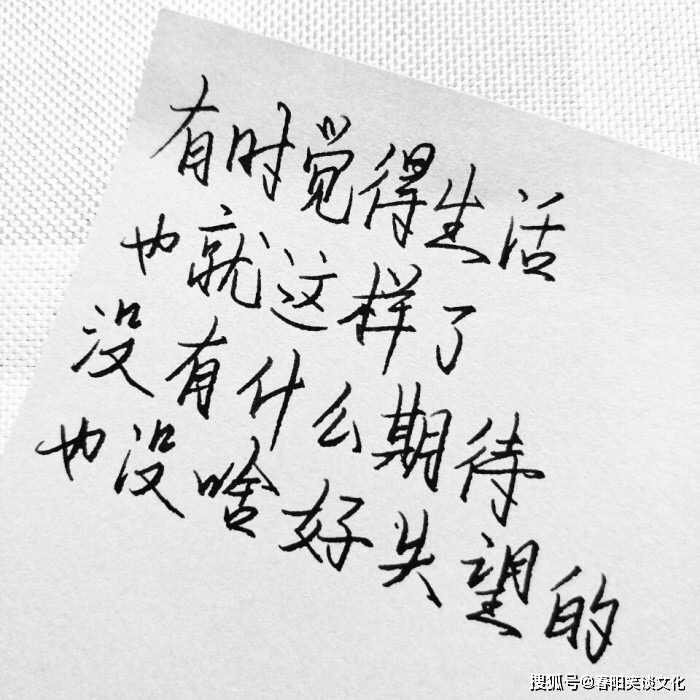 有时觉得生活
也就这样了
没有什么期待
也没啥好失望的
搜狐号@春阳笑谈文化